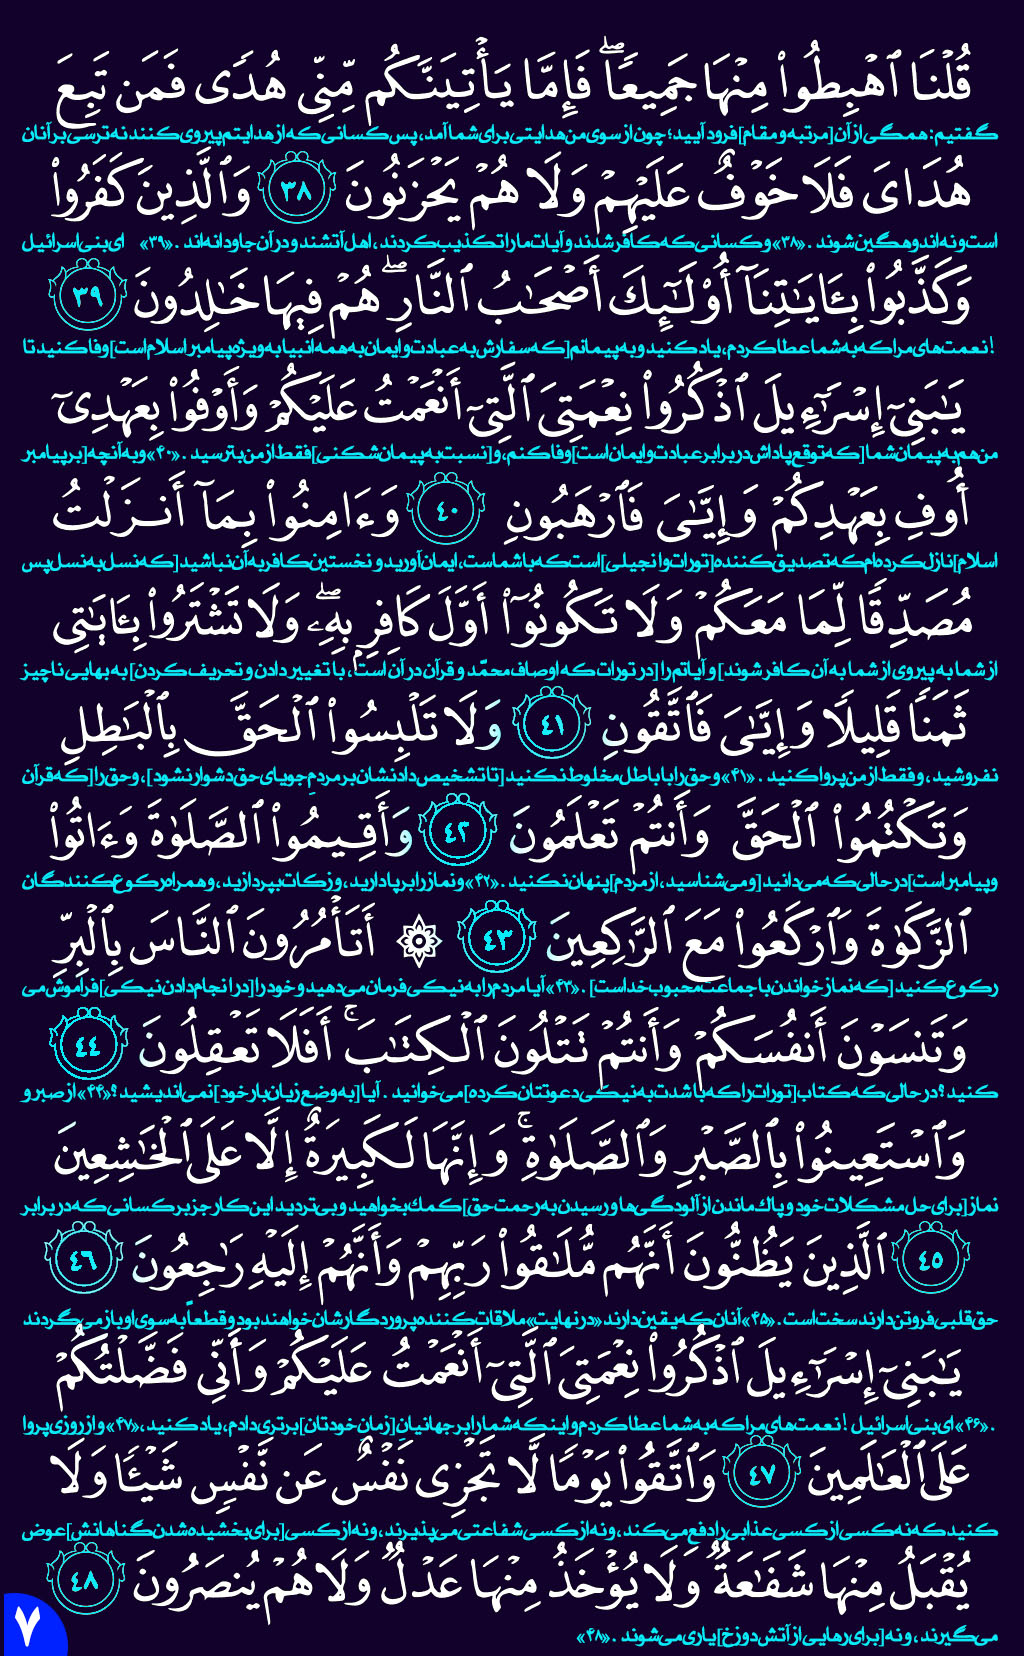 قُلْنَا ٱهْبِطُوا۟ مِنْهَا جَمِيعًا ۖ فَإِمَّا يَأْتِيَنَّكُم مِّنِّى هُدًى فَمَن تَبِعَ
گفتیم: همگی از آن [مرتبه و مقام] فرود آیید؛ چون از سوی من هدایتی برای شما آمد، پس کسانی که از هدایتم پیروی کنند نه ترسی بر آنان
هُدَاىَ فَلَا خَوْفٌ عَلَيْهِمْ وَلَا هُمْ يَحْزَنُونَ ٣٨ وَٱلَّذِينَ كَفَرُوا۟
است و نه اندوهگین شوند. «۳۸» و کسانی که کافر شدند و آیات ما را تکذیب کردند، اهل آتشند و در آن جاودانه اند. «۳۹» ای بنی اسرائیل
وَكَذَّبُوا۟ بِـَٔايَـٰتِنَآ أُو۟لَـٰٓئِكَ أَصْحَـٰبُ ٱلنَّارِ ۖ هُمْ فِيهَا خَـٰلِدُونَ ٣٩
! نعمت های مرا که به شما عطا کردم، یاد کنید و به پیمانم [که سفارش به عبادت و ایمان به همه انبیا به ویژه پیامبر اسلام است] وفا کنید تا
يَـٰبَنِىٓ إِسْرَٰٓءِيلَ ٱذْكُرُوا۟ نِعْمَتِىَ ٱلَّتِىٓ أَنْعَمْتُ عَلَيْكُمْ وَأَوْفُوا۟ بِعَهْدِىٓ
من هم به پیمان شما [که توقع پاداش در برابر عبادت و ایمان است] وفا کنم، و [نسبت به پیمان شکنی] فقط از من بترسید. «۴۰» و به آنچه [بر پیامبر
أُوفِ بِعَهْدِكُمْ وَإِيَّـٰىَ فَٱرْهَبُونِ ٤٠ وَءَامِنُوا۟ بِمَآ أَنزَلْتُ
اسلام] نازل کرده ام که تصدیق کننده [تورات و انجیلی] است که با شماست، ایمان آورید و نخستین کافر به آن نباشید [که نسل به نسل پس
مُصَدِّقًا لِّمَا مَعَكُمْ وَلَا تَكُونُوٓا۟ أَوَّلَ كَافِرٍۭ بِهِۦ ۖ وَلَا تَشْتَرُوا۟ بِـَٔايَـٰتِى
از شما به پیروی از شما به آن کافر شوند] و آیاتم را [در تورات که اوصاف محمّد و قرآن در آن است، با تغییر دادن و تحریف کردن] به بهایی ناچیز
ثَمَنًا قَلِيلًا وَإِيَّـٰىَ فَٱتَّقُونِ ٤١ وَلَا تَلْبِسُوا۟ ٱلْحَقَّ بِٱلْبَـٰطِلِ
نفروشید، و فقط از من پروا کنید. «۴۱» و حق را با باطل مخلوط نکنید [تا تشخیص دادنشان بر مردم جویای حق دشوار نشود]، و حق را [که قرآن
وَتَكْتُمُوا۟ ٱلْحَقَّ وَأَنتُمْ تَعْلَمُونَ ٤٢ وَأَقِيمُوا۟ ٱلصَّلَوٰةَ وَءَاتُوا۟
و پیامبر است] در حالی که می دانید [و می شناسید، از مردم] پنهان نکنید. «۴۲» و نماز را بر پا دارید، و زکات بپردازید، و همراه رکوع کنندگان
ٱلزَّكَوٰةَ وَٱرْكَعُوا۟ مَعَ ٱلرَّٰكِعِينَ ٤٣ ۞ أَتَأْمُرُونَ ٱلنَّاسَ بِٱلْبِرِّ
رکوع کنید [که نماز خواندن با جماعت محبوب خداست]. «۴۳» آیا مردم را به نیکی فرمان می دهید و خود را [در انجام دادن نیکی] فراموش می
وَتَنسَوْنَ أَنفُسَكُمْ وَأَنتُمْ تَتْلُونَ ٱلْكِتَـٰبَ ۚ أَفَلَا تَعْقِلُونَ ٤٤
کنید؟ در حالی که کتاب [تورات را که با شدت به نیکی دعوتتان کرده] می خوانید. آیا [به وضع زیان بار خود] نمی اندیشید؟ «۴۴» از صبر و
وَٱسْتَعِينُوا۟ بِٱلصَّبْرِ وَٱلصَّلَوٰةِ ۚ وَإِنَّهَا لَكَبِيرَةٌ إِلَّا عَلَى ٱلْخَـٰشِعِينَ
نماز [برای حل مشکلات خود و پاک ماندن از آلودگی ها و رسیدن به رحمت حق] کمك بخواهید و بی تردید این کار جز بر کسانی که در برابر
٤٥ ٱلَّذِينَ يَظُنُّونَ أَنَّهُم مُّلَـٰقُوا۟ رَبِّهِمْ وَأَنَّهُمْ إِلَيْهِ رَٰجِعُونَ ٤٦
حق قلبی فروتن دارند سخت است. «۴۵» آنان که یقین دارند «در نهایت» ملاقات کننده پروردگارشان خواهند بود و قطعاً به سوی او باز می گردند
يَـٰبَنِىٓ إِسْرَٰٓءِيلَ ٱذْكُرُوا۟ نِعْمَتِىَ ٱلَّتِىٓ أَنْعَمْتُ عَلَيْكُمْ وَأَنِّى فَضَّلْتُكُمْ
. «۴۶» ای بنی اسرائیل! نعمت های مرا که به شما عطا کردم و اینکه شما را بر جهانیان [زمان خودتان] برتری دادم، یاد کنید، «۴۷» و از روزی پروا
عَلَى ٱلْعَـٰلَمِينَ ٤٧ وَٱتَّقُوا۟ يَوْمًا لَّا تَجْزِى نَفْسٌ عَن نَّفْسٍ شَيْـًٔا وَلَا
کنید که نه کسی از کسی عذابی را دفع می کند، و نه از کسی شفاعتی می پذیرند، و نه از کسی [برای بخشیده شدن گناهانش] عوض
يُقْبَلُ مِنْهَا شَفَـٰعَةٌ وَلَا يُؤْخَذُ مِنْهَا عَدْلٌ وَلَا هُمْ يُنصَرُونَ ٤٨
می گیرند، و نه [برای رهایی از آتش دوزخ] یاری می شوند. «۴۸»
۷